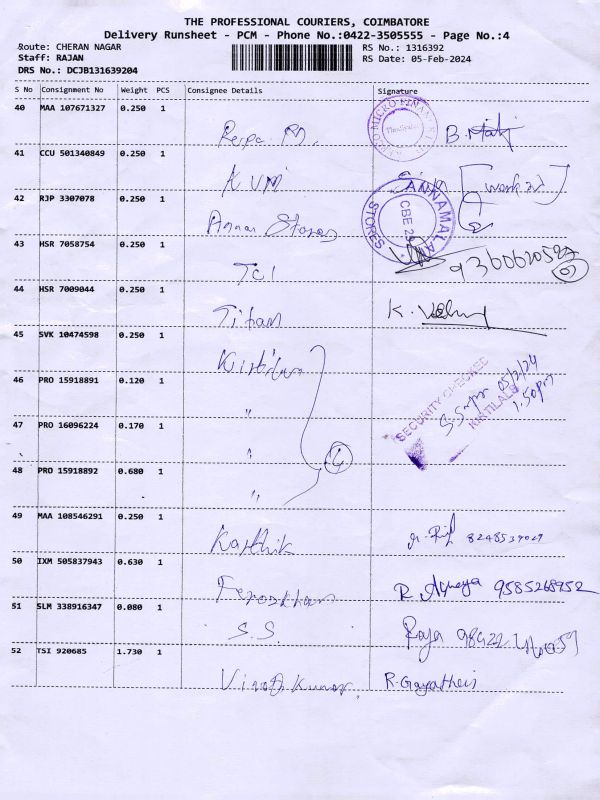 THE PROFESSIONAL COURIERS, COIMBATORE
Delivery Runsheet - PCM - Phone No.:0422-3505555 - Page No.:4
Route: CHERAN NAGAR RS No.: 1316392
Staff: RAJAN RS Date: 05-Feb-2024
DRS No.: DCJB131639204
S No Consignment No Weight PCS Consignee Details Signature
40 MAA 107671327 0.250 1
MICRO FINAN
B.
41 CCU 501340849 0.250 1
KVM
42 RJP 3307078 0.250 1
Anna Stores
ANNAMALAI
CBE
STORES
43 HSR 7058754 0.250 1
TCI
44 HSR 7009044 0.250 1
Titan K.
45 SVK 10474598 0.250 1
Kirtilals
46 PRO 15918891 0.120 1
" SECURITY CHECKED
KIRTILALS
05/2/24
1.50pm
47 PRO 16096224 0.170 1
" 4
48 PRO 15918892 0.680 1
"
49 MAA 108546291 0.250 1
Karthik
50 IXM 505837943 0.630 1
Feroskhan R. 9585268952
51 SLM 338916347 0.080 1
S.S. Raja
52 TSI 920685 1.730 1
Vinoth Kumar R. Gayathri